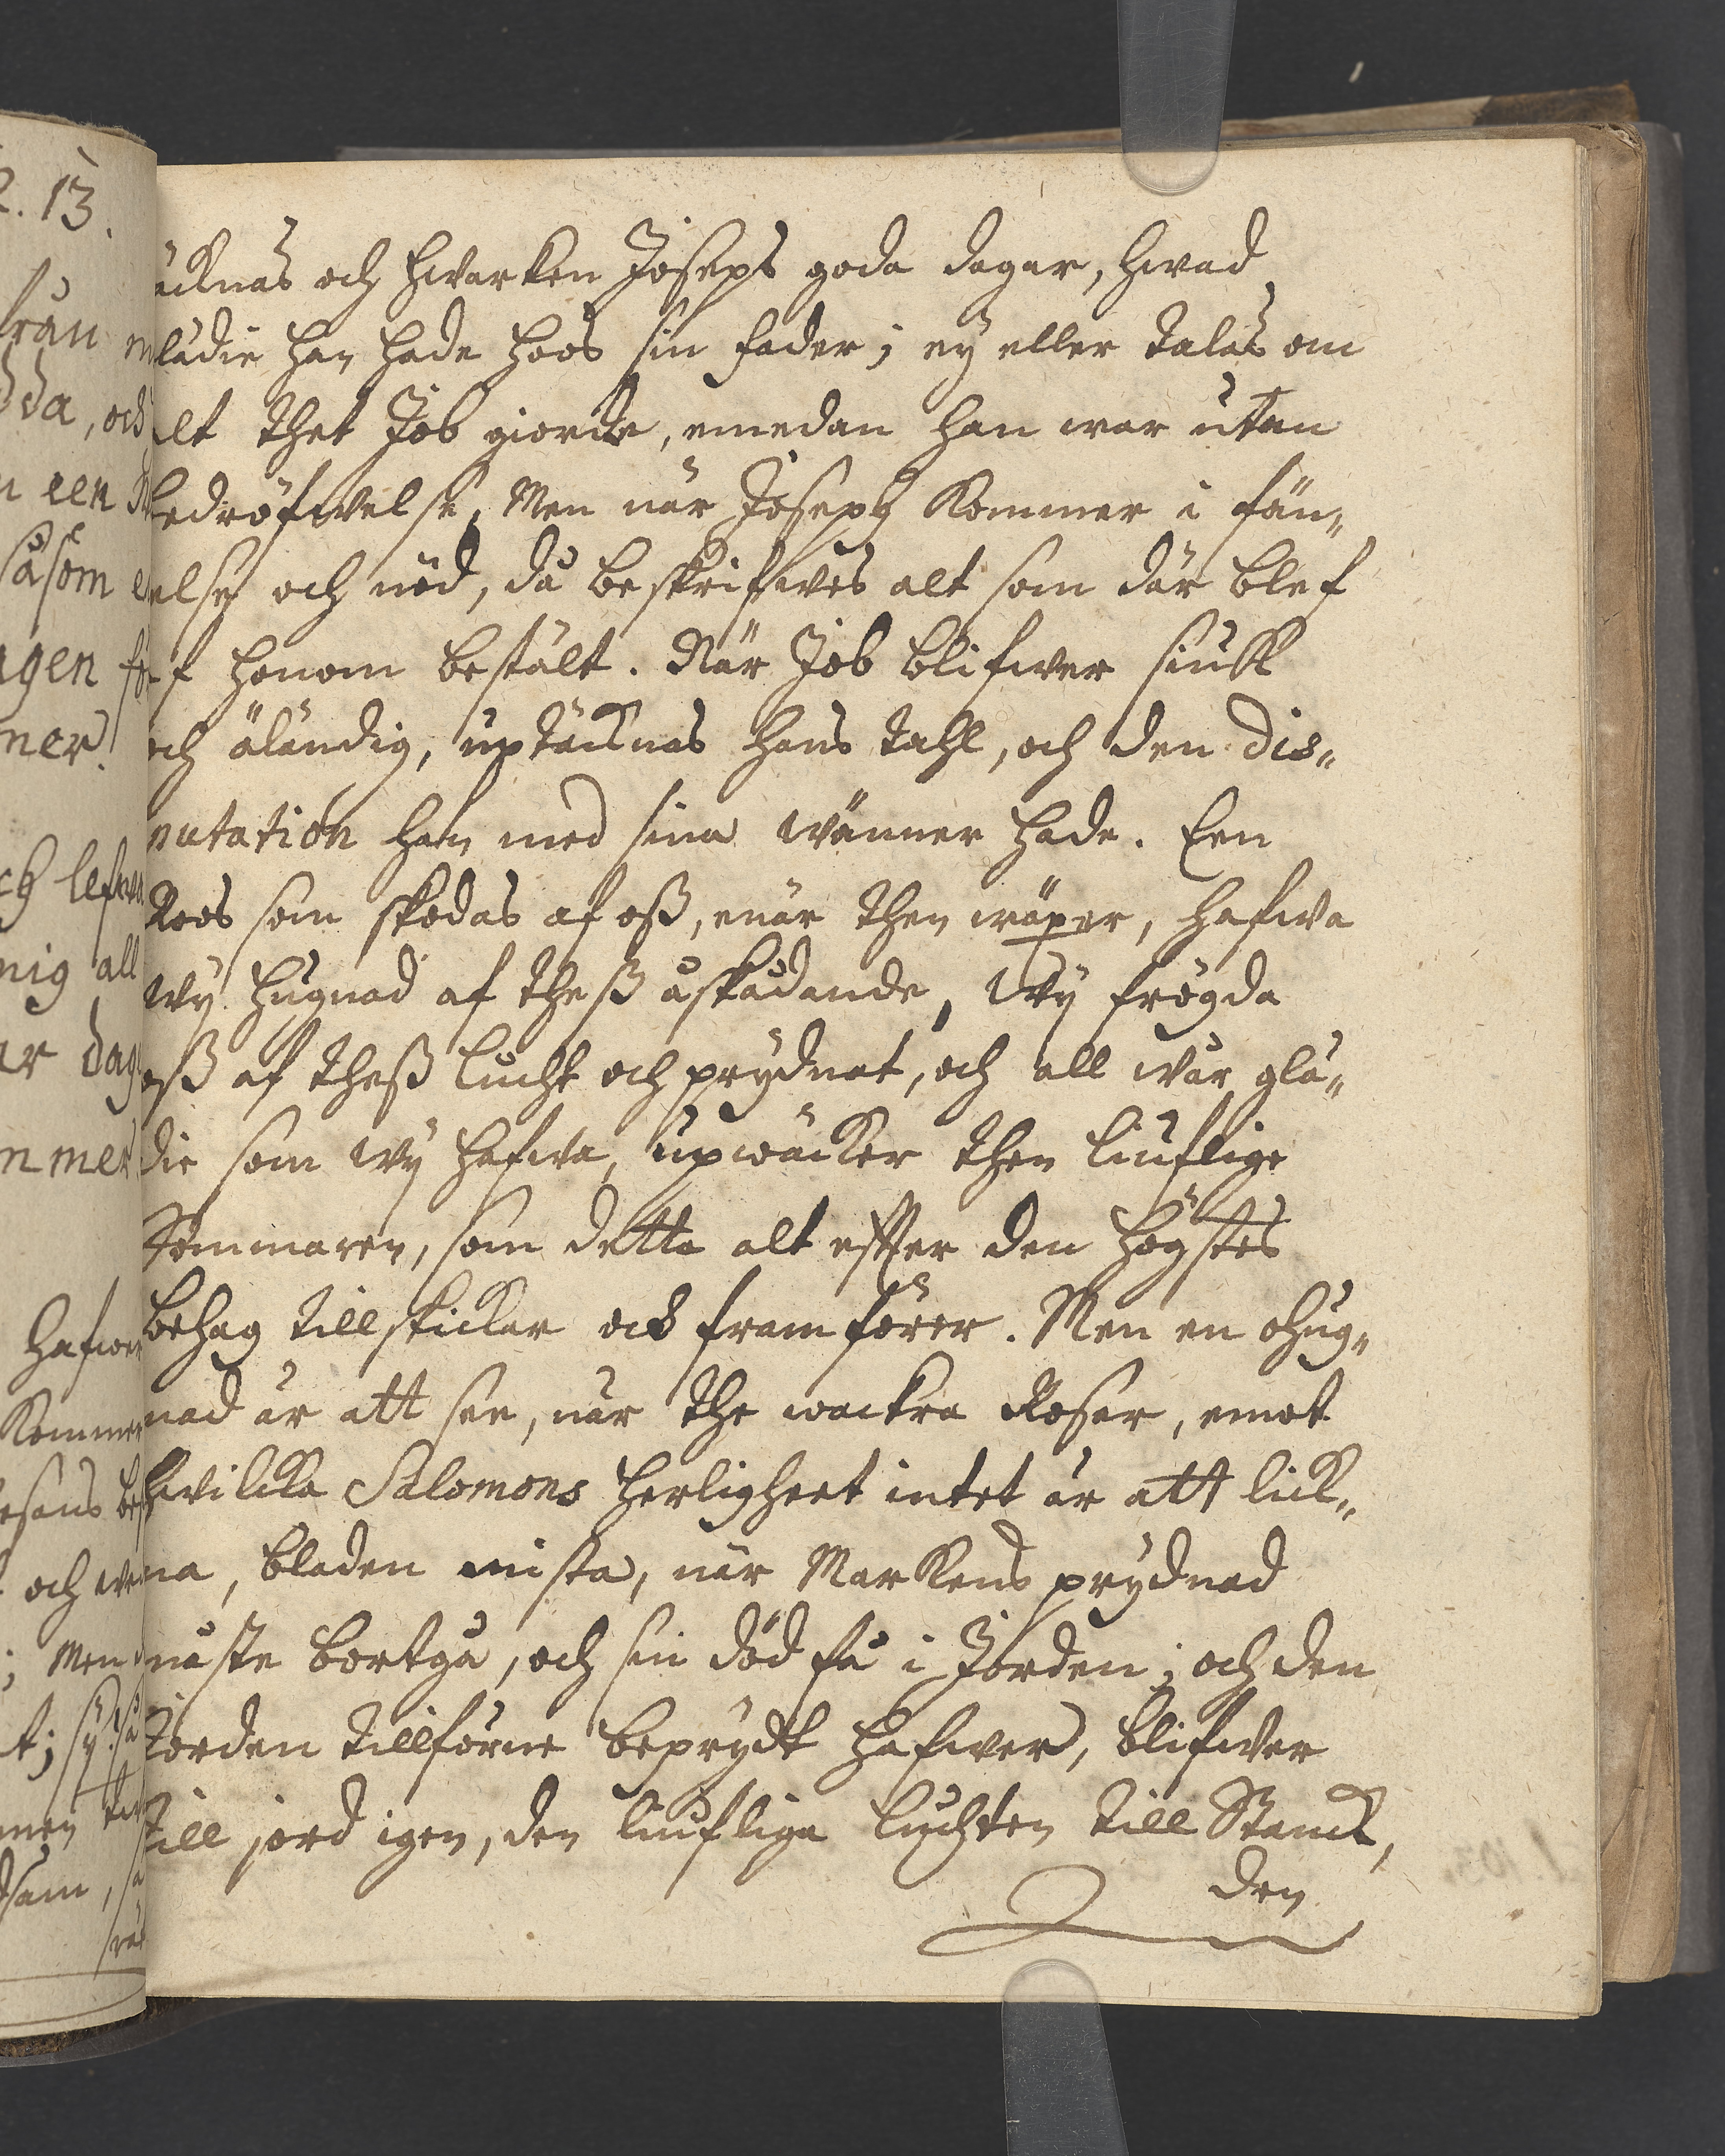 2. 13.
äcknas och hwarken Josephs goda dagar, hwad
lädie han hade hoos sin fader; ey eller talas om
alt thet Job giorde, emedan han war utan
bedröfwelse. Men när Joseph kommer i fän„
else och nöd, då beskrifwes alt som där blef
af honom bestält. När Job blifwer siuk
och äländig, uptäcknas hans tahl, och den dis„
putation han med sina wänner hade. Een
Roos som skodas af oss, enär then wäxer, hafwa
wÿ hugnad af thess åskådande, Wÿ frögda
oss af thess lucht och prydnat, och all wår glä„
die som wÿ hafwa, upwäcker then liuflige
Sommaren, som detta alt effter den högstes
behag tillskickar och framförer. Men en ohug„
nad är att see, när the wackra Roser, emot
hwilcka Salomons herligheet intet är att lick„
na, bladen mista, när Markens prydnad
måste bortgå, och sin död få i Jorden; och den
Jorden tillförne beprydt hafwer, blifwer
till jord igen, den liufliga luchten till Stanck,
den